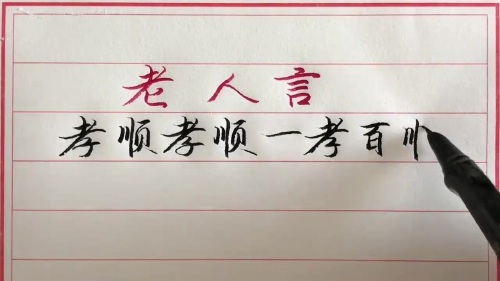 老人言
孝顺孝顺一孝百